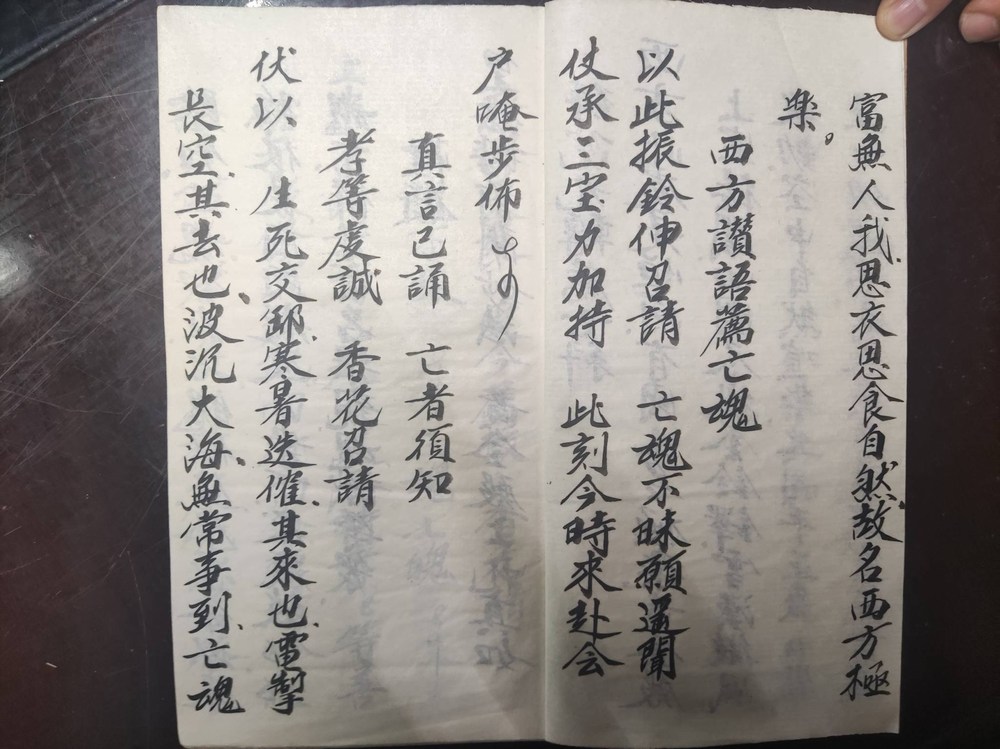 富無人我思衣思食自然故名西方極
楽。
西方讃語薦亡魂
以此振鈴伸召請 亡魂不昧願遥聞
仗承三宝力加持 此刻今時來赴会
户唵步佈
真言已誦 亡者須知
孝等虔誠 香花召請
伏以 生死交卸、寒暑迭催、其來也、電掣
長空、其去也、波沉大海、無常事到、亡魂